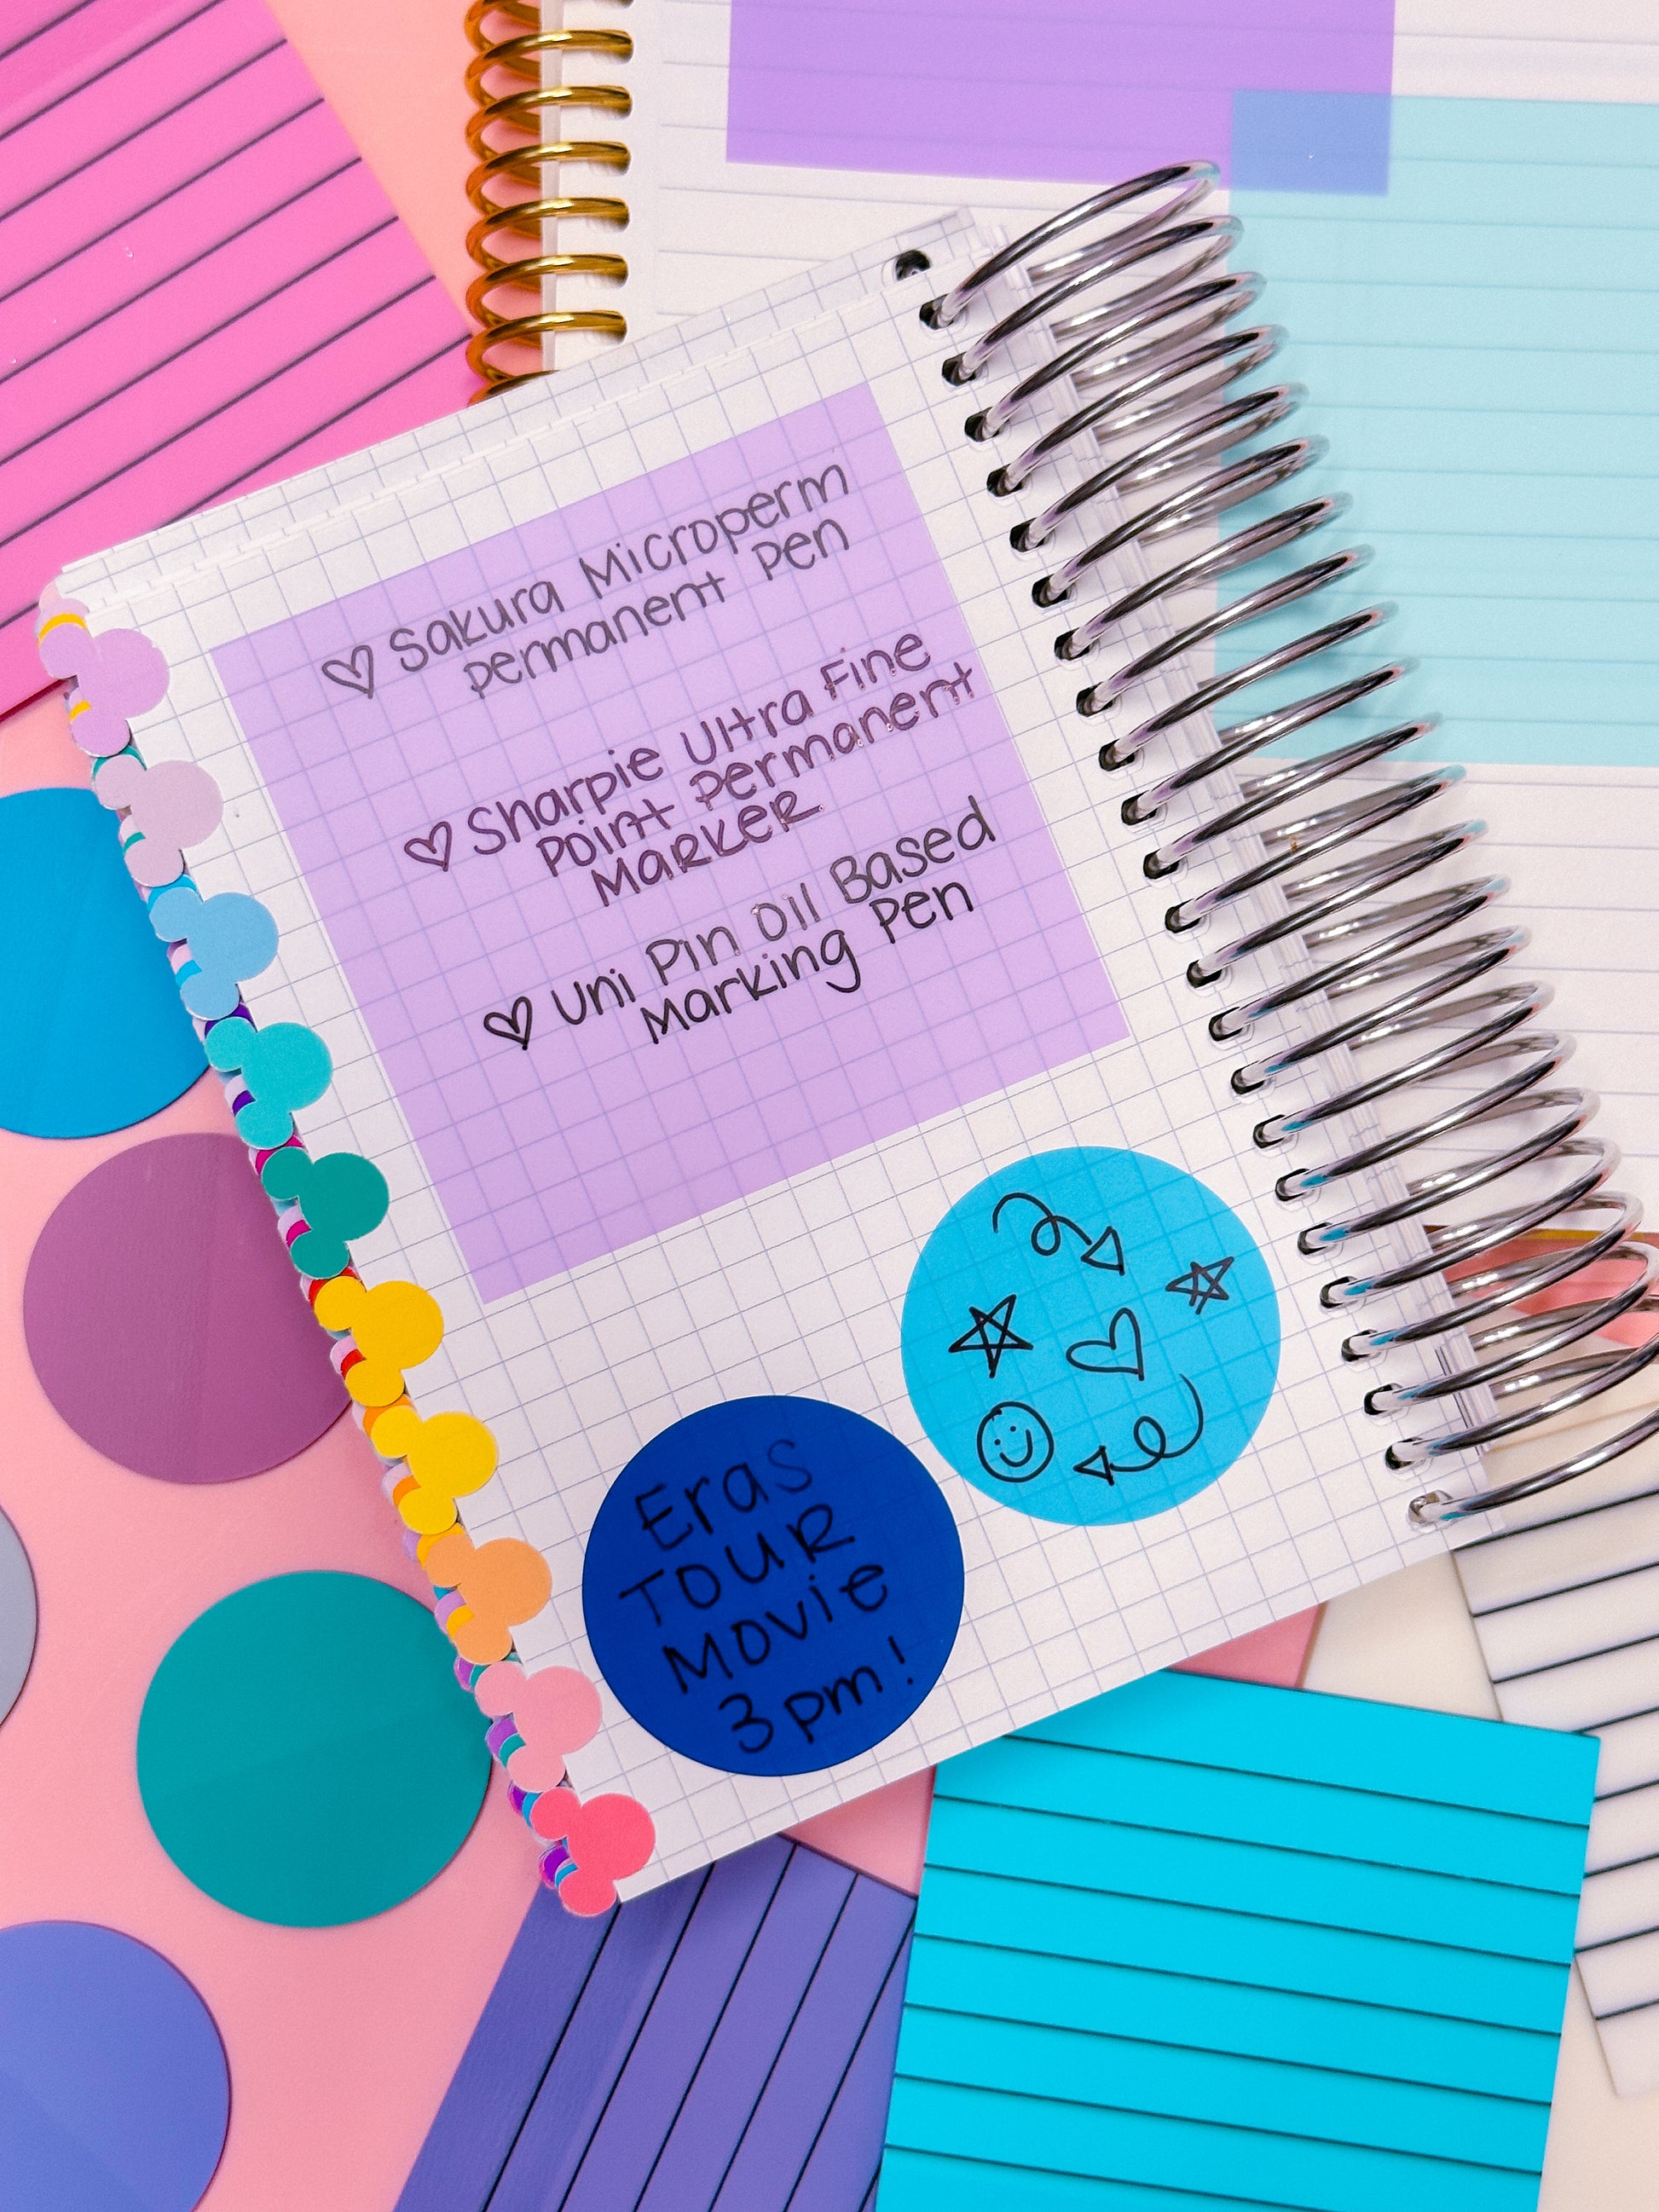 ♡ Sakura Microperm
permanent pen
♡ Sharpie Ultra Fine
point permanent
MARKER
♡ Uni Pin Oil Based
Marking Pen
Eras
TOUR
MOVIE
3 pm!